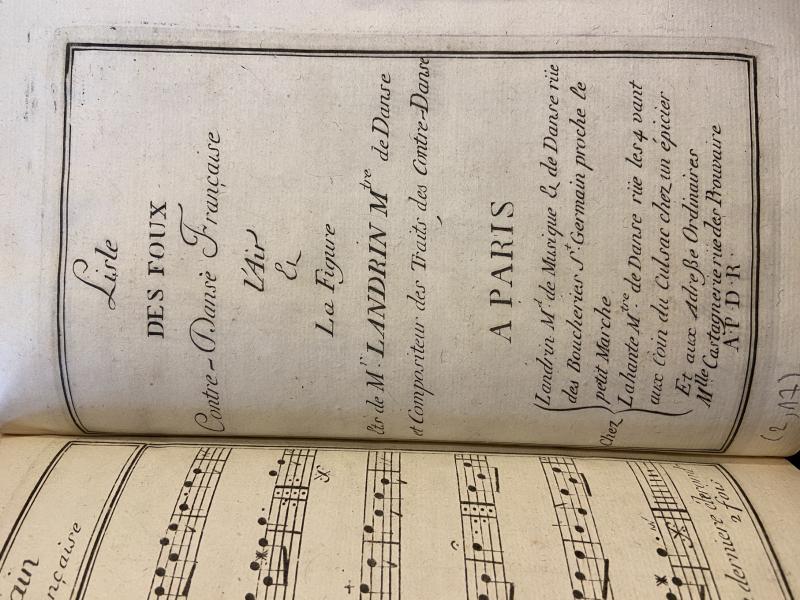 Lisle
DES FOUX
Contre-Danse Française
l'Air
&
La Figure
de Mr. LANDRIN Mtre de Danse
et Compositeur des Traits des Contre-Danse
A PARIS
Chez
Landrin Md. de Musique & de Danse rüe
des Boucheries St. Germain proche le
petit Marche
Lahante Mtre. de Danse rüe les 4 vant
aux Coin du Culsac chez un épicier
Et aux Adreße Ordinaires
Mlle Castagnerie rue des Prouvaire
A.P.D.R.
(2,17)
ain
nçaise
derniere
2 fois